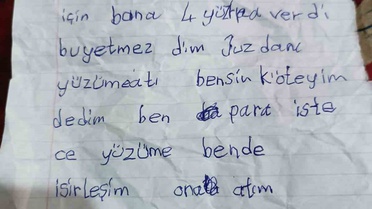 için bana 4 yüz verdi
buyetmez dim Juzdanı
yüzümeatı bensin kibteyim
dedim ben para iste
ce yüzüme bende
isirleşim ona atım